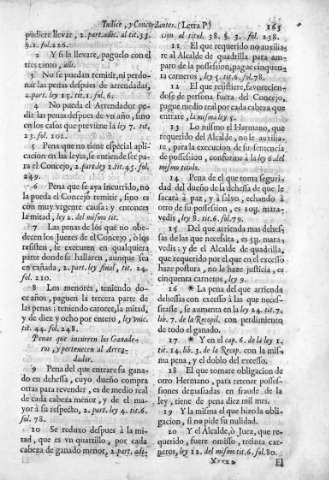 Indice, y Concordantes. (Letra P) 265
pudiere llevar, 2. part. adit. al tit. 33.
§. 1. fol. 226.
2 Y si la llevare, paguelo con el
tres tanto
3 No se puedan remitir, ni perdonar
despues de ser arrendadas,
2. part. ley 15. tit. 6. fol. 86.
4 No pueda el Arrendador pedir
las penas despues de vn año, sino
en los casos que previene la ley 7. tit.
23. fol. 102.
5 Pena que no tiene especial aplicacion
en las leyes, se entiende ser para
el Concejo, 2. part. ley 2. tit. 45. fol.
249.
6 Pena que se aya incurrido, no
la pueda el Concejo remitir, sino es
con muy vrgente causa; y entonces
la mitad, ley 2. del mismo tit.
7 Las penas de los que no obedecen
los Jueces del Concejo, ò los
resisten, se executen en qualquiera
parte donde se hallaren, aunque sea
en cañada, 2. part. ley final, tit. 24.
fol. 210.
8 Los menores, teniendo doce
años, paguen la tercera parte de
las penas; teniendo catorce, la mitad,
y de diez y ocho por entero, ley vnic.
tit. 44. fol. 248.
Penas que incurren los Ganaderos,
y pertenecen al Arrendador.
9 Pena del que entrare su ganado
en dehessa, cuyo dueño compra
otras para revender, es de medio real
de cada cabeza menor, y de el mayor
à su respecto, 2. part. ley 4. tit. 6.
fol. 78.
10 Se reduxo despues à la mitad,
que es vn quartillo, por cada
cabeza de ganado menor, 2. part. adi-
cion al titul. 38. §. 3. fol. 238.
11 El que requerido no auxiliare
al Alcalde de quadrilla para amparo
de la possession, pague cinquenta
carneros, ley 5. tit. 6. fol. 78.
12 El que resistiere, favoreciendose
de persona fuera del Concejo,
pague medio real por cada cabeza que
entrare, la misma ley 5.
13 Lo mismo el Hermano, que
requerido del Alcalde, no le auxiliare,
para la execucion de su sentencia
de possession, conforme à la ley 6 del
mismo titulo.
14 Pena de el que toma seguridad
del dueño de la dehessa de que le
sacará à paz, y à salvo, echando à
otro de su possession, es 10y. maravedis,
ley 8. tit. 6. fol. 79.
15 Del que arrienda mas dehessas
de las que necessita, es 5y. maravedis;
y de el Alcalde de quadrilla,
que requerido por el que en el excesso
haze postura, no le haze justicia, es
cinquenta carneros, ley 9.
16 * La pena del que arrienda
dehessas con excesso à las que necessitasse,
se aumenta en la ley 24. tit. 7.
lib. 7. de la Recopil. con perdimiento
de todo el ganado.
17 * Y en el cap. 6. de la ley 1.
tit. 14. lib. 3. de la Recop. con la misma
pena, y el doblo del excesso.
18 El que tomare obligacion de
otro Hermano, para retener possessiones
demasiadas en fraude de la
ley, tiene de pena diez mil mrs.
19 Y la misma el que hizo la obligacion,
si no pide su nulidad.
20 Y el Alcalde, ò Juez, que requerido,
fuere omisso, treinta carneros,
ley 12. del mismo tit. 6. fol. 80.
El